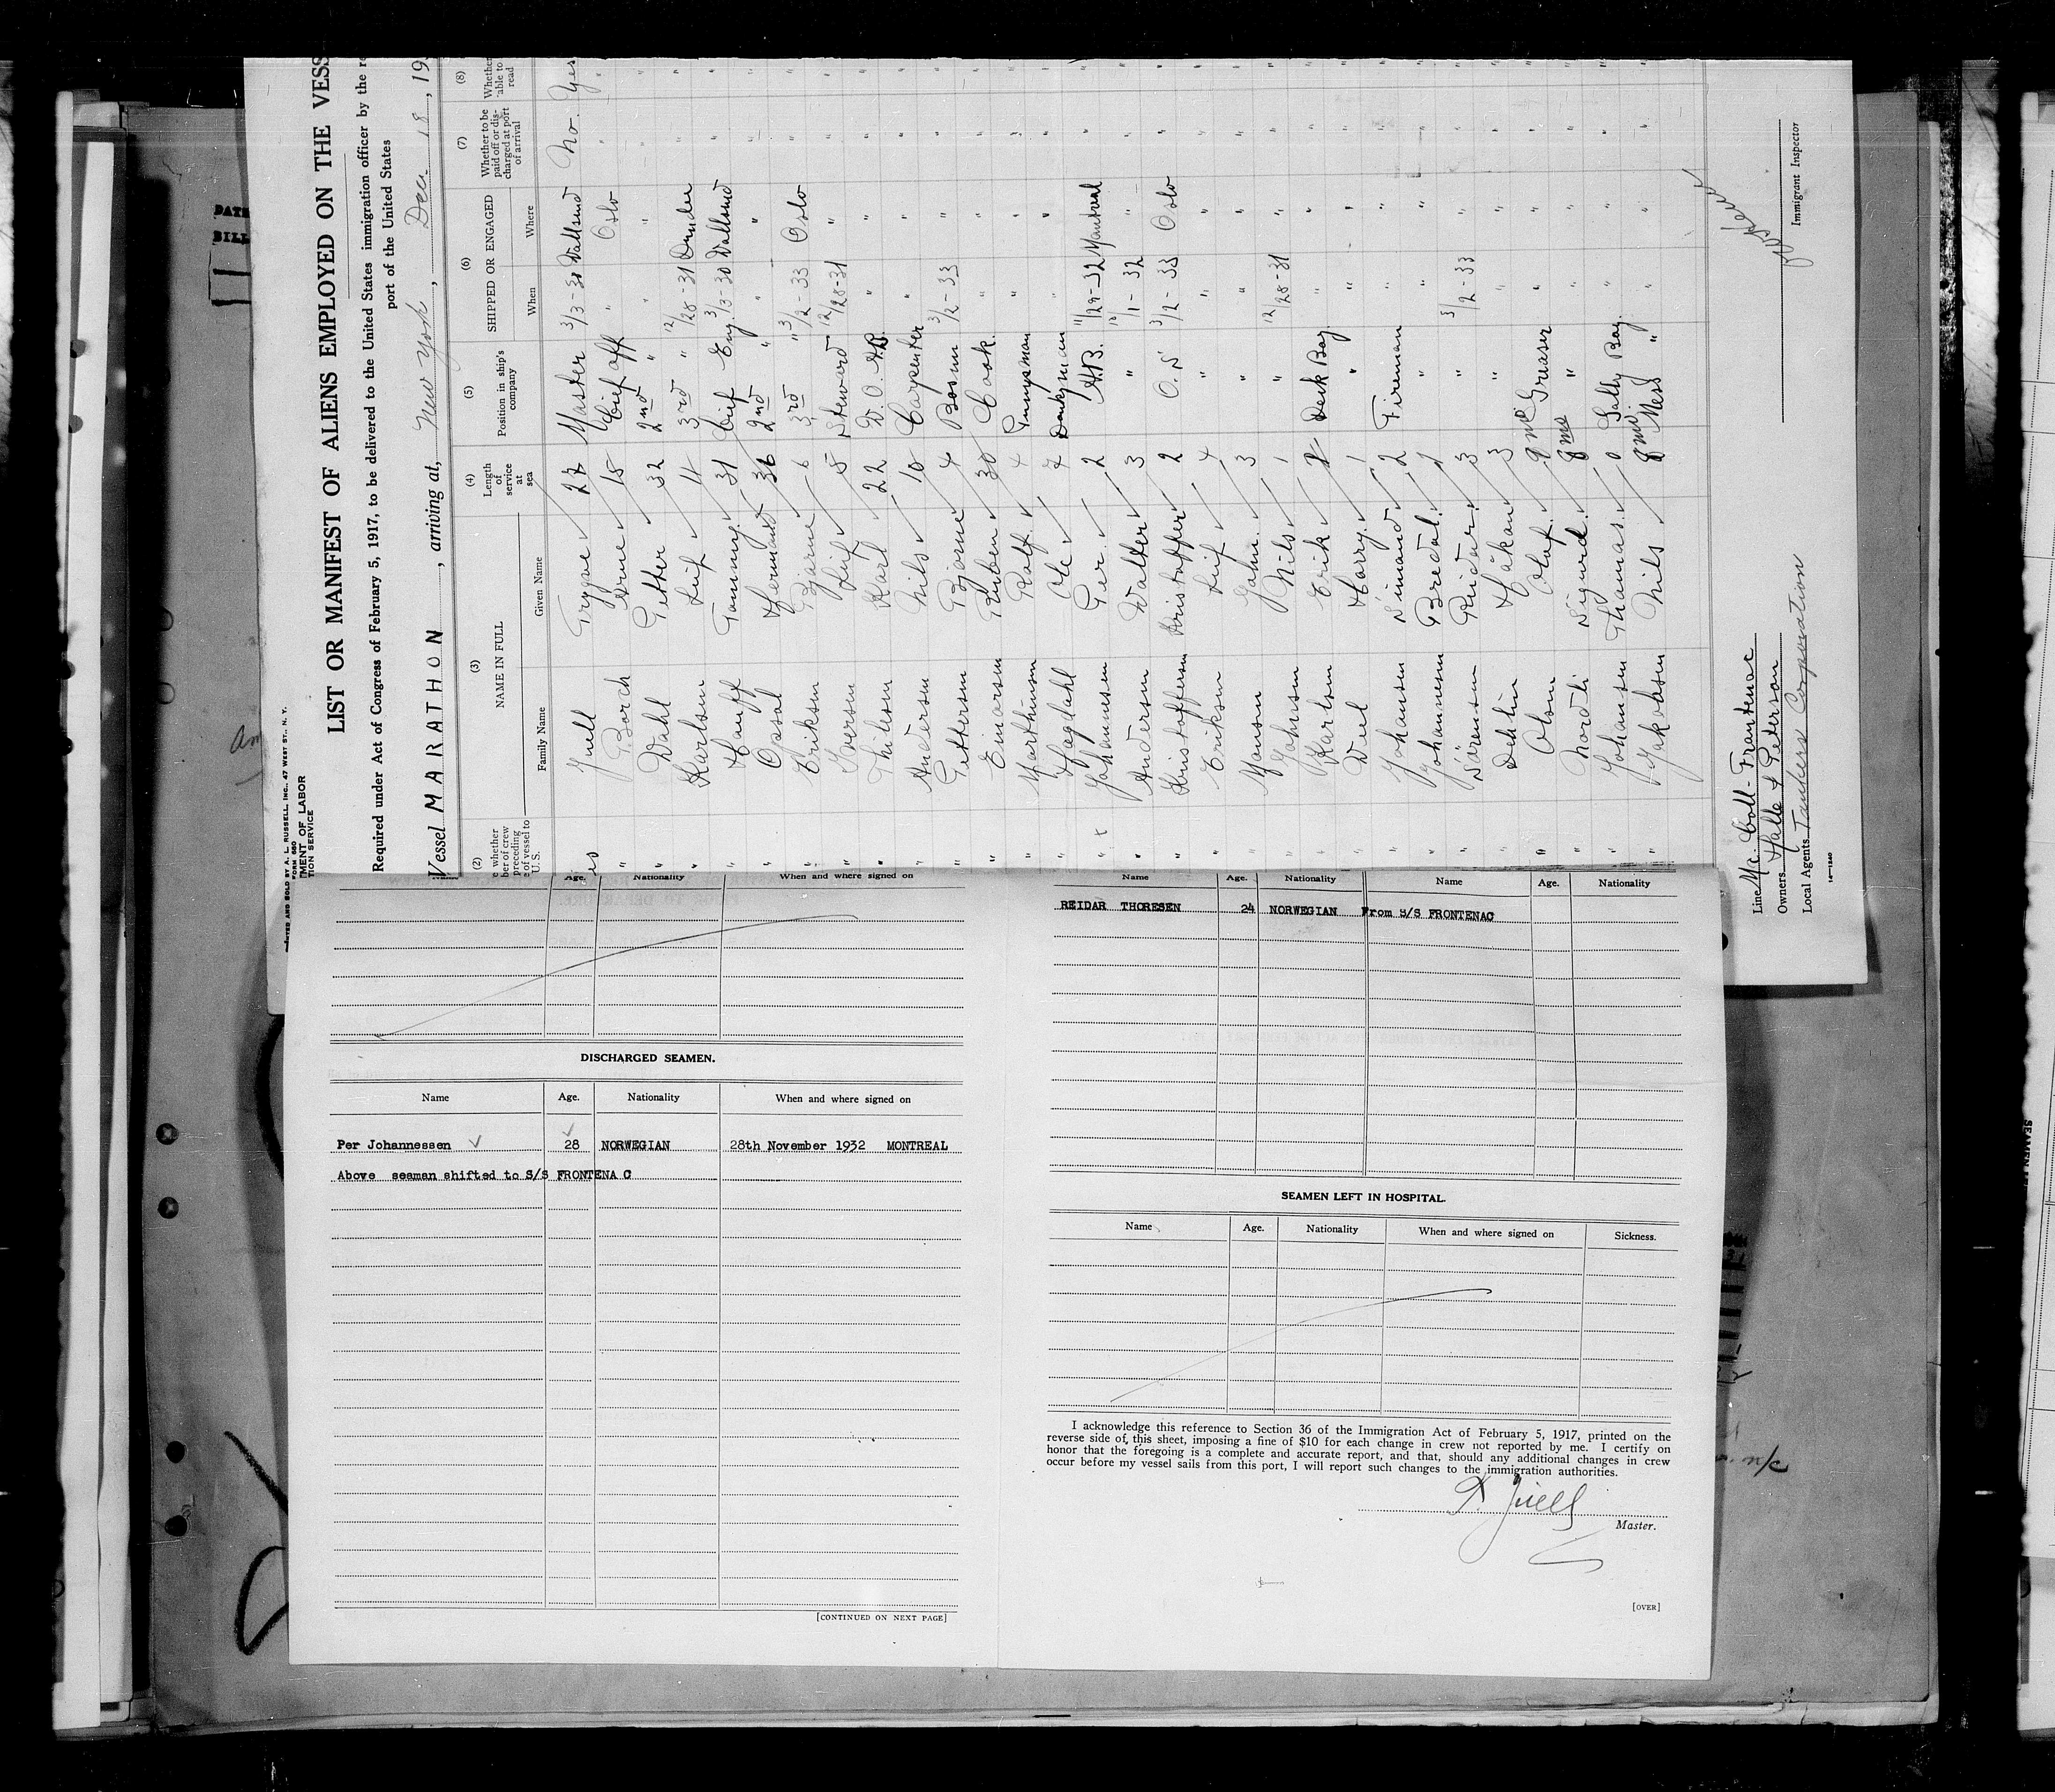 LIST OR MANIFEST OF ALIENS EMPLOYED ON THE VESS
Required under Act of Congress of February 5, 1917, to be delivered to the United States immigration officer by the re
port of the United States
Vessel MARATHON , arriving at, New York , Dec. 18 , 19
(2) (3) (4) (5) (6) (7) (8)
NAME IN FULL
Family Name Given Name
Length of service at sea
Position in ship's company
SHIPPED OR ENGAGED
When Where
Whether to be paid off or discharged at port of arrival
Whether able to read
Juell Trygve 27 Master 3/3-30 Vallsund No. Yes
Borch Arne 18 Chief off " Oslo " "
Dahl Petter 32 2nd " " " " "
Karlsen Leif 11 3rd " 12/28-31 Dundee " "
Hauff 31 Chief Eng. 3/3-30 Vallsund " "
Opsal Hermand 36 2nd " " " " "
Eriksen Bjarne 6 3rd " 3/2-33 Oslo " "
Iversen Leif 5 Steward 12/28-31 " " "
Karl 22 " " " "
Andersen Nils 10 Carpenter " " " "
Pettersen Bjarne 4 Bosun 3/2-33 " " "
Einarsen Ruben 30 Cook " " " "
Marthinsen Rolf 4 Pumpsman " " " "
Hagdahl Ole 7 Donkeyman " " " "
Johannesen Per 2 A.B. 11/28-32 Montreal " "
Andersen Walter 3 " " "
Kristoffersen Kristoffer 2 O.S 3/2-33 Oslo " "
Eriksen Leif 4 " " " " "
Hansen John 3 " " " " "
Johnsen Nils 1 " 12/28-31 " " "
Karlsen Erik Deck Boy " " " "
Harry 1 " " " " "
Johansen 2 Fireman " " " "
Johannesen Bredal " " " " "
Sörensen Reidar 3 " 3/2-33 " " "
Dehlin Håkon 3 " " " " "
Olsen Olaf 9 mo Greaser " " " "
Nordli Sigurd 8 mo " " " " "
Johansen Thomas 0 " " " "
Jakobsen Nils 8 mo Mess " " " " "
Line Mc. Coll-Frontenac
Owners Halle & Peterson
Local Agents Tankers Corporation
Immigrant Inspector
14—1240
PRINTED AND SOLD BY A. L. RUSSELL, INC., 47 WEST ST., N. Y.
FORM 680
MENT OF LABOR
TION SERVICE
Age. Nationality When and where signed on
DISCHARGED SEAMEN.
Name Age. Nationality When and where signed on
Per Johannessen 28 NORWEGIAN 28th November 1932 MONTREAL
Above seaman shifted to S/S FRONTENA C
[CONTINUED ON NEXT PAGE]
Name Age. Nationality Name Age. Nationality
REIDAR THORESEN 24 NORWEGIAN From S/S FRONTENAC
SEAMEN LEFT IN HOSPITAL.
Name Age. Nationality When and where signed on Sickness.
I acknowledge this reference to Section 36 of the Immigration Act of February 5, 1917, printed on the
reverse side of this sheet, imposing a fine of $10 for each change in crew not reported by me. I certify on
honor that the foregoing is a complete and accurate report, and that, should any additional changes in crew
occur before my vessel sails from this port, I will report such changes to the immigration authorities.
T. Juell
Master.
[OVER]
DATE
BILL